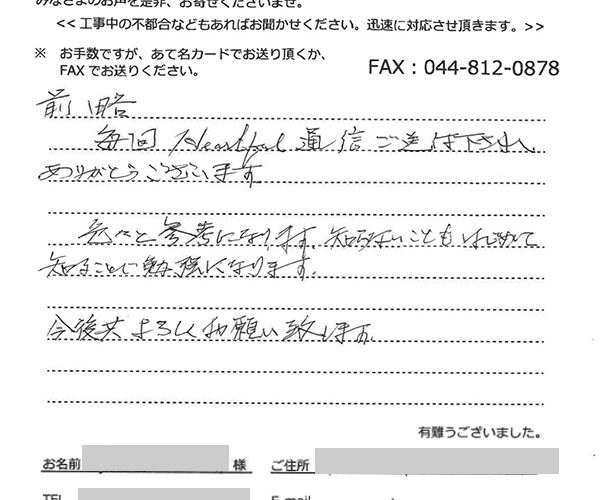 みなさまのお声を是非、お寄せくださいませ。
<< 工事中の不都合などもあればお聞かせください。迅速に対応させ頂きます。>>
※ お手数ですが、あて名カードでお送り頂くか、
FAX でお送りください。
FAX : 044-812-0878
前略
毎回 Heartful 通信ご送付下され、
ありがとうございます
色々と参考になります。知らないこともはじめて
知ることで勉強になります。
今後共よろしくお願い致します。
有難うございました。
お名前 様 ご住所
TEL E-mail